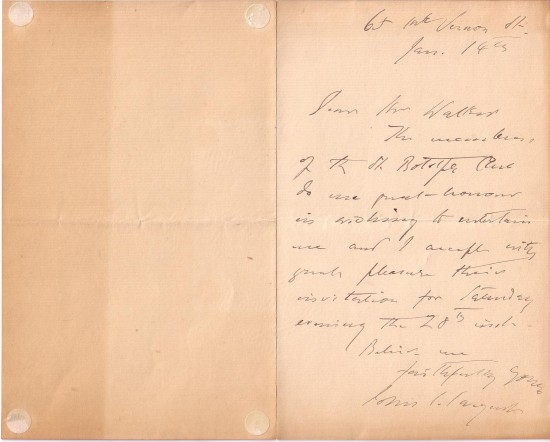 65 Mt Vernon St.
Jan. 14th
Dear Mr Walker
The members
of the St Botolph Club
do me great honour
in wishing to entertain
me and I accept with
great pleasure their
invitation for Saturday
evening the 28th inst.
Believe me
faithfully yours
John S. Sargent